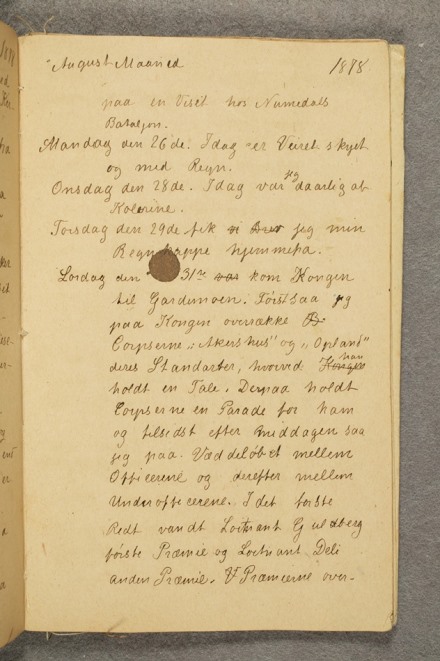 August Maaned 1878
paa en Visit hos Numedals
Bataljon.
Mandag den 26de. Idag er Veiret skyet
og med Regn.
Onsdag den 28de. Idag var jeg daarlig af
Kolerine.
Torsdag den 29de fik vi Brev jeg min
Regnkappe hjemmefra.
Lørdag den 31te var kom Kongen
til Gardermoen. Først saa jeg
paa Kongen overrække B
Corpserne „Akershus" og „Opland"
deres Standarter, hvorved Kongen han
holdt en Tale. Derpaa holdt
Corpserne en Parade for ham
og tilsidst efter Middagen saa
jeg paa Væddeløbet mellem
Officerene og derefter mellem
Underofficerene. I det første
Redt vandt Loitnant Guldberg
første Præmie og Loitnant Deli
anden Præmie. Præmierne over-